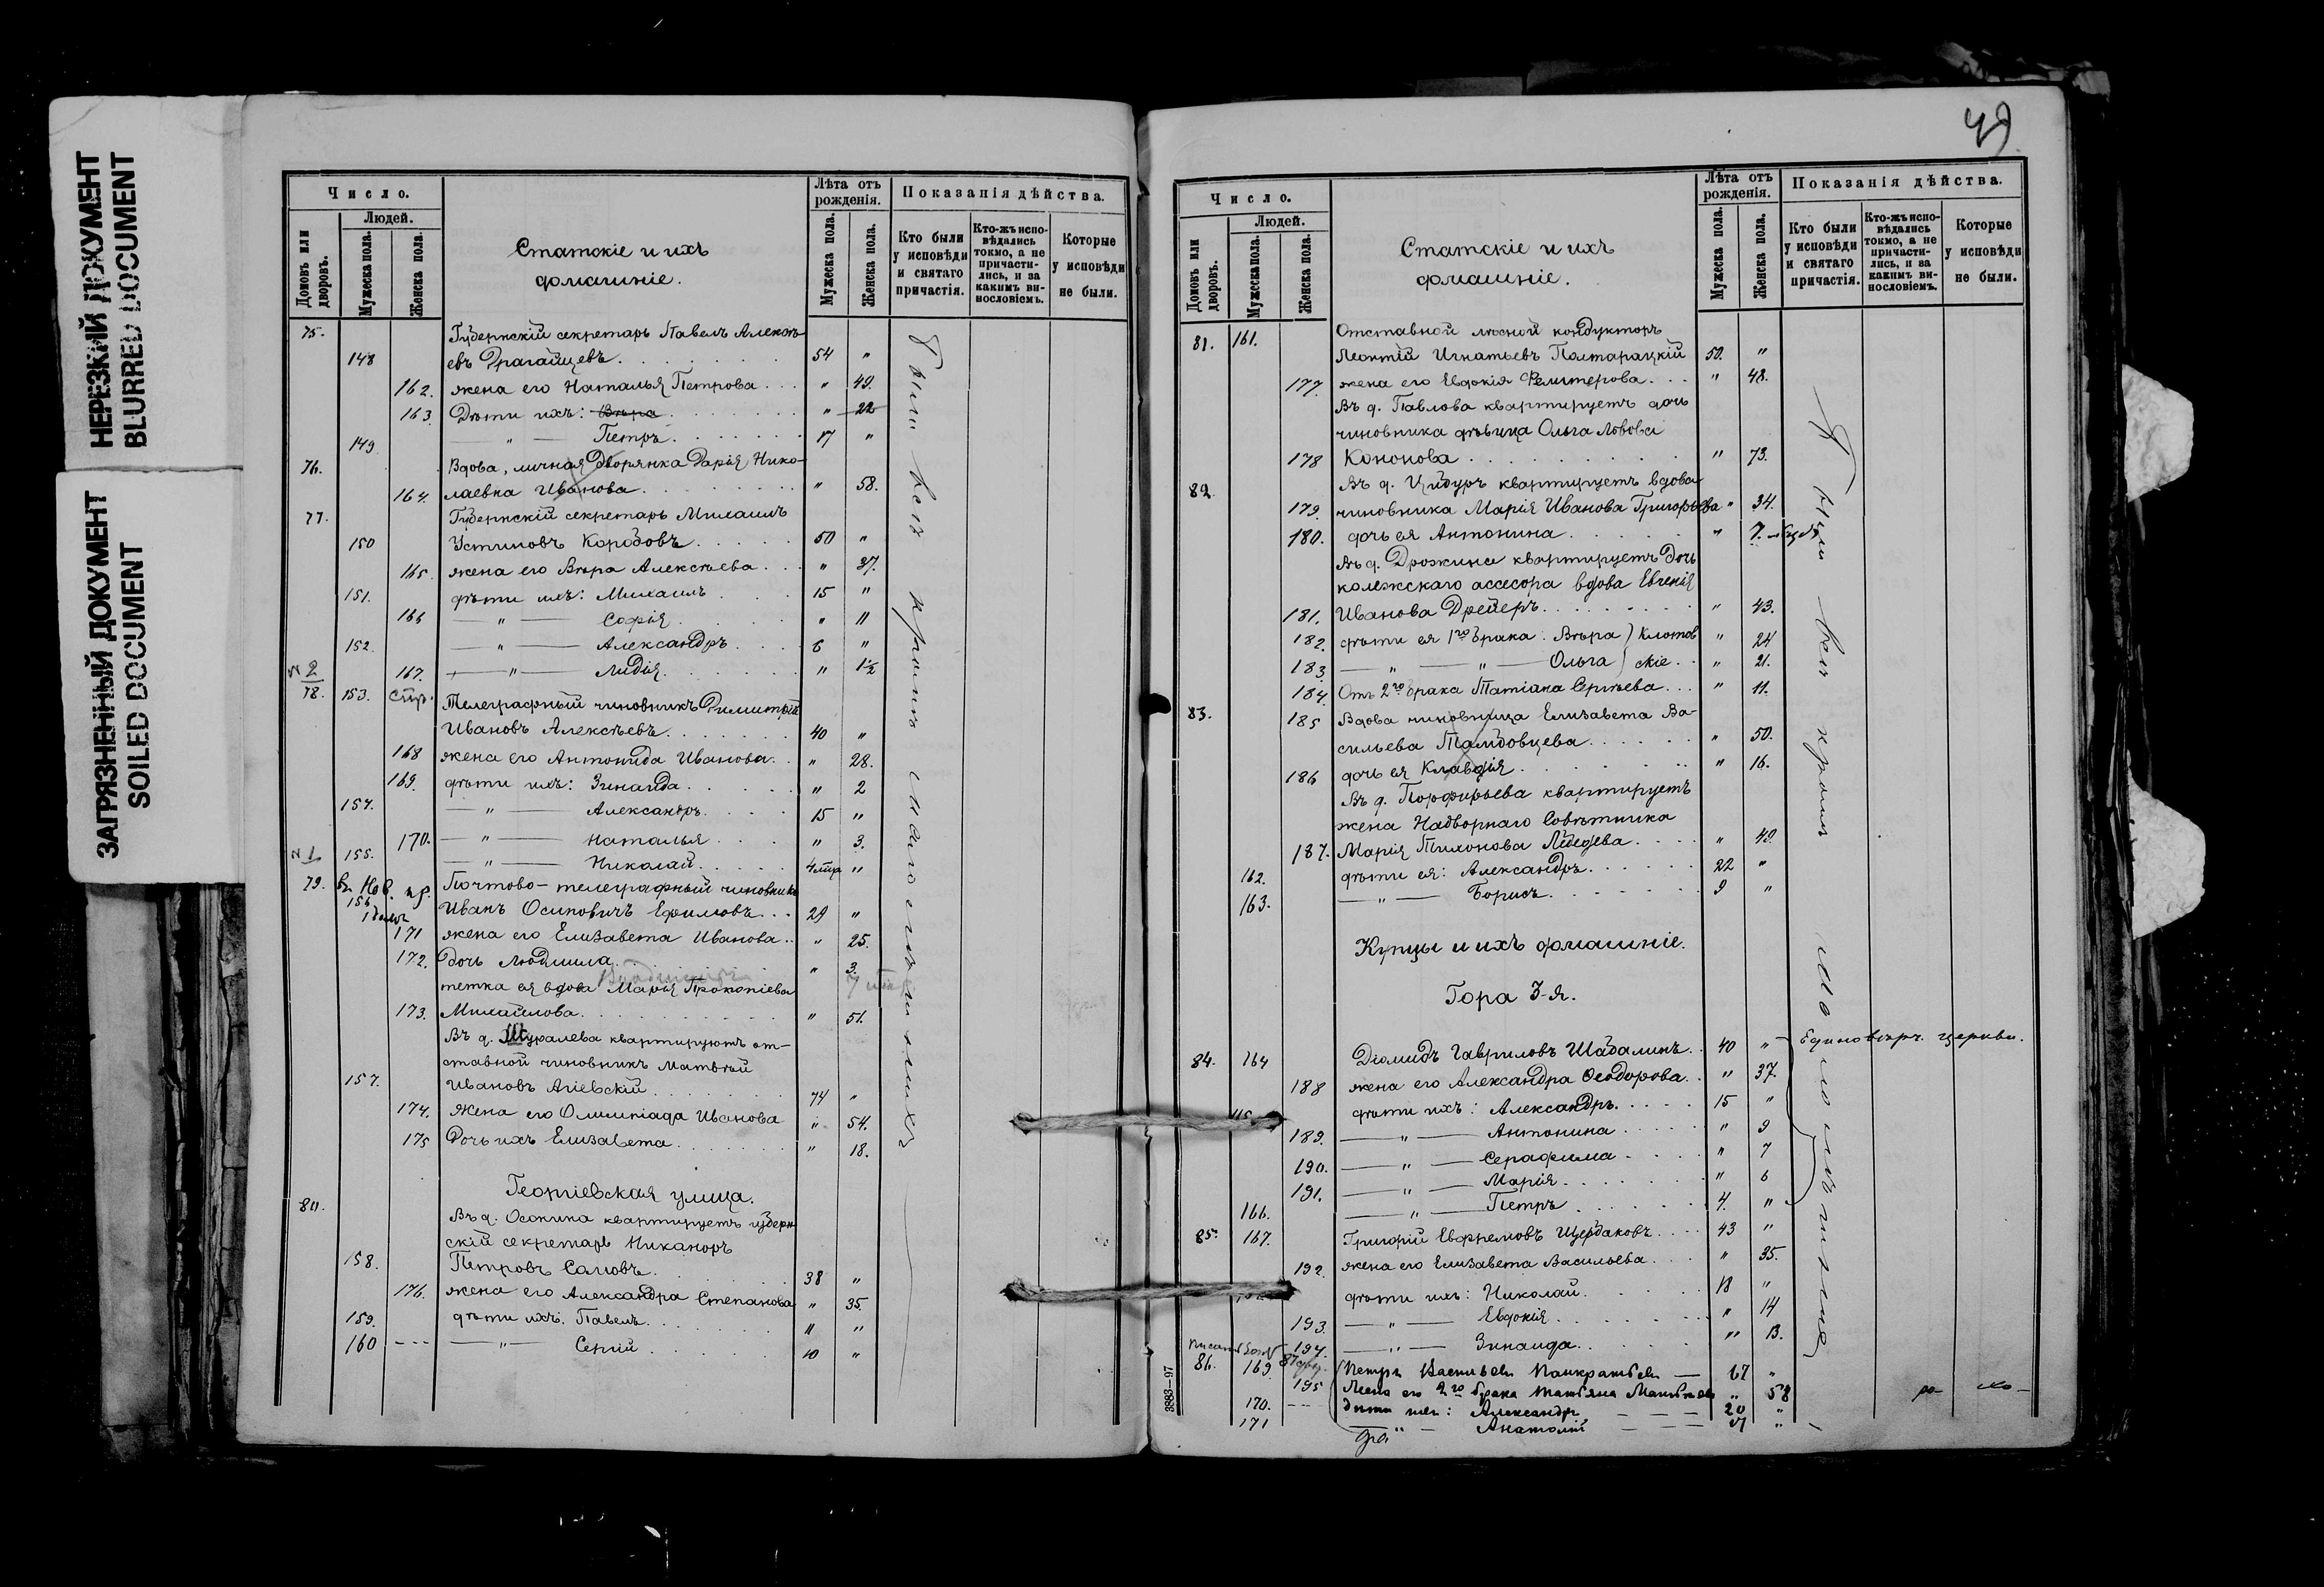 НЕРЕЗКИЙ ДОКУМЕНТ
BLURRED DOCUMENT
ЗАГРЯЗНЕННЫЙ ДОКУМЕНТ
SOILED DOCUMENT
Число.
Людей.
Домовъ или дворовъ.
Мужеска пола.
Женска пола.
Статскіе и ихъ
домашніе.
Лѣта отъ рожденія.
Мужеска пола.
Женска пола.
Показанія дѣйства.
Кто были у исповѣди и святаго причастія.
Кто-жъ исповѣдались токмо, а не причастились, и за какимъ виносло­віемъ.
Которые у исповѣди не были.
75. Губернскій секретарь Павелъ Алексѣ-
148 евъ Драгайцевъ 54 "
162. жена его Наталья Петрова " 49.
163. Дѣти ихъ: Вѣра " 22
149 " Петръ 17 "
76. Вдова, личная дворянка Дарія Нико-
164. лаевна Иванова " 58.
77. Губернскій секретарь Михаилъ
150 Устиновъ Коробовъ 50 "
165. жена его Вѣра Алексѣева " 37.
151. дѣти ихъ: Михаилъ 15 "
166 " Софія " 11
152. " Александръ 6 "
№ 2
167. " Лидія " 1½
78. 153. Телеграфный чиновникъ Димитрій
Ивановъ Алексѣевъ 40 "
168 жена его Антонида Иванова " 28.
169. дѣти ихъ: Зинаида " 2
154. " Александръ 15 "
170. " Наталья " 3.
№ 1
155. " Николай "
79. Почтово-телеграфный чиновникъ
156 Иванъ Осиповичъ Ефимовъ 29 "
171 жена его Елизавета Иванова " 25.
172. дочь Людмила " 3.
тетка ея вдова Марія Прокопіева
173. Михайлова " 51.
Въ д. Шуралева квартируютъ от-
ставной чиновникъ Матвѣй
157. Ивановъ Агіевскій 74 "
174. Жена его Олимпіада Иванова " 54.
175 Дочь ихъ Елизавета " 18.
Георгіевская улица.
80. Въ д. Осокина квартируетъ губерн
скій секретарь Никаноръ
158. Петровъ Саловъ 38 "
176. жена его Александра Степанова " 35.
159. дѣти ихъ: Павелъ 11 "
160 " Сергій 10 "
Были всѣ кромѣ малолѣтнихъ
49.
Число.
Людей.
Домовъ или дворовъ.
Мужеска пола.
Женска пола.
Статскіе и ихъ
домашніе.
Лѣта отъ рожденія.
Мужеска пола.
Женска пола.
Показанія дѣйства.
Кто были у исповѣди и святаго причастія.
Кто-жъ исповѣдались токмо, а не причастились, и за какимъ виносло­віемъ.
Которые у исповѣди не были.
81. 161. Отставной лѣсной кондукторъ
Леонтій Игнатьевъ Полтарацкій 50. "
177. жена его Евдокія " 48.
Въ д. Павлова квартируетъ дочь
чиновника дѣвица Ольга Львова
178 Кононова " 73.
82. Въ д. Цидуръ квартируетъ вдова
179. чиновника Марія Иванова Григорьева " 34.
180. дочь ея Антонина " 7.
Въ д. Дрожжина квартируетъ дочь
колежскаго ассесора вдова Евгенія
181. Иванова Дрейеръ " 43.
182. дѣти ея 1го брака. Вѣра " 24
183. " " Ольга " 21.
184. Отъ 2го брака Татіана Сергѣева " 11.
83. 185 Вдова чиновница Елизавета Ва-
сильева " 50.
186 дочь ея Клавдія " 16.
Въ д. Порфирьева квартируетъ
жена Надворнаго Совѣтника
187. Марія Тихонова Лебедева " 40.
162. дѣти ея: Александръ 22 "
163. " Борисъ 9 "
Купцы и ихъ домашніе.
Гора 3-я.
Единовѣрч. церкви.
84. 164 Діомидъ Гавриловъ Шабалинъ 40 "
188 жена его Александра Ѳеодорова " 37.
дѣти ихъ: Александръ 15 "
189. " Антонина " 9
190. " Серафима " 7
191. " Марія " 6
166. " Петръ 4. "
85. 167. Григорій Евфремовъ Щербаковъ 43 "
192. жена его Елизавета Васильева " 35.
дѣти ихъ: Николай 18 "
193. " Евдокія " 14
194. " Зинаида " 13.
86. 169 Петръ Васильевъ Панкратьевъ 67 "
195 Жена его 2го брака Татьяна Матвѣева " 58
170. дѣти ихъ: Александръ 20 "
171 " Анатолій "
Были всѣ кромѣ малолѣтнихъ
3883—97